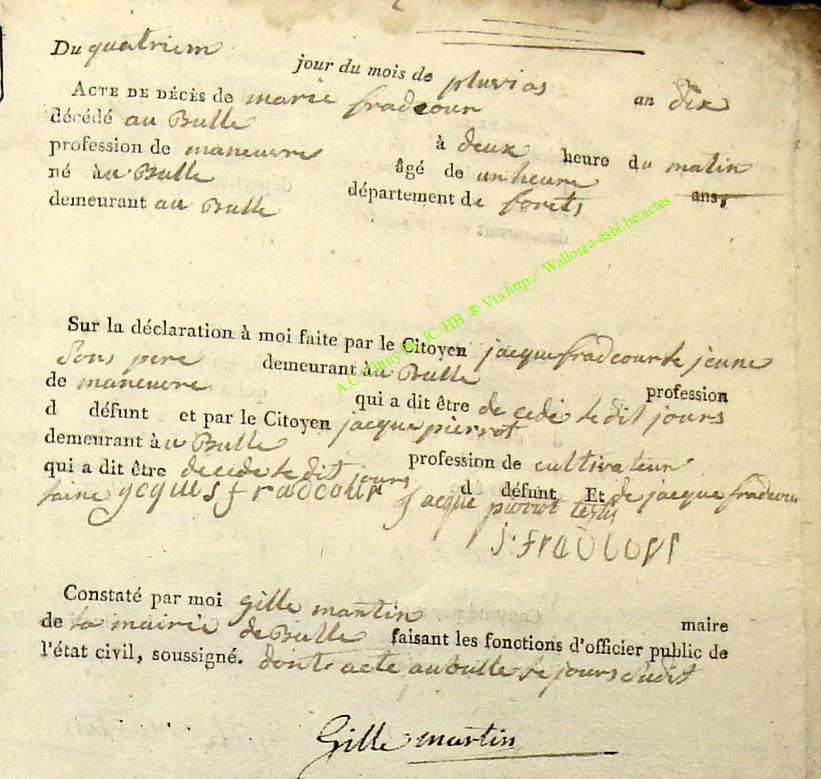 Du quatriem jour du mois de pluvios an dix
ACTE DE DÉCÈS de marie fradcour
décédé au Bulle à deux heure du matin
profession de maneuvre âgé de un heure ans,
né à au Bulle département de forets
demeurant au Bulle
Sur la déclaration à moi faite par le Citoyen jacque fradcour le jeune
Sons pere demeurant à au Bulle profession
de maneuvre qui a dit être de cedé le dit jours
d défunt et par le Citoyen jacque pierrot
demeurant à au Bulle profession de cultivateur
qui a dit être decede le dit jours d défunt Et de jacque fradcour
laine jcques fradcour jacque pierrot testis
j. fradcour
Constaté par moi gille martin maire
de la mairie de Bulle faisant les fonctions d'officier public de
l'état civil, soussigné. dont acte au bulle le jours Sudit
Gille martin
JC HB ® Via http:// Wallonia-asbl.be/actes